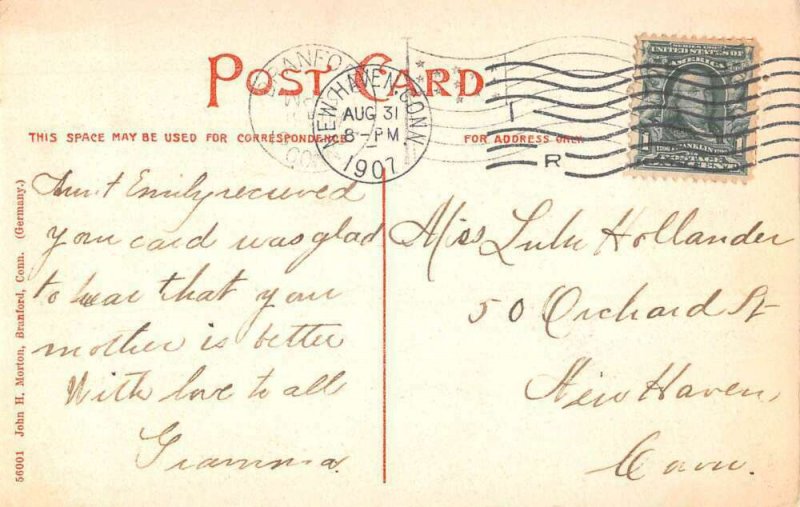 POST CARD
THIS SPACE MAY BE USED FOR CORRESPONDENCE
FOR ADDRESS ONLY
NEW HAVEN, CONN.
AUG 31
8-PM
1907
R
SERIES 1902
UNITED STATES OF
AMERICA
FRANKLIN
POSTAGE
Aunt Emily recieved
your card was glad
to hear that your
mother is better
With love to all
Gramma.
Miss Lulu Hollander
50 Orchard St
New Haven,
Conn.
56001 John H. Morton, Branford, Conn. (Germany.)